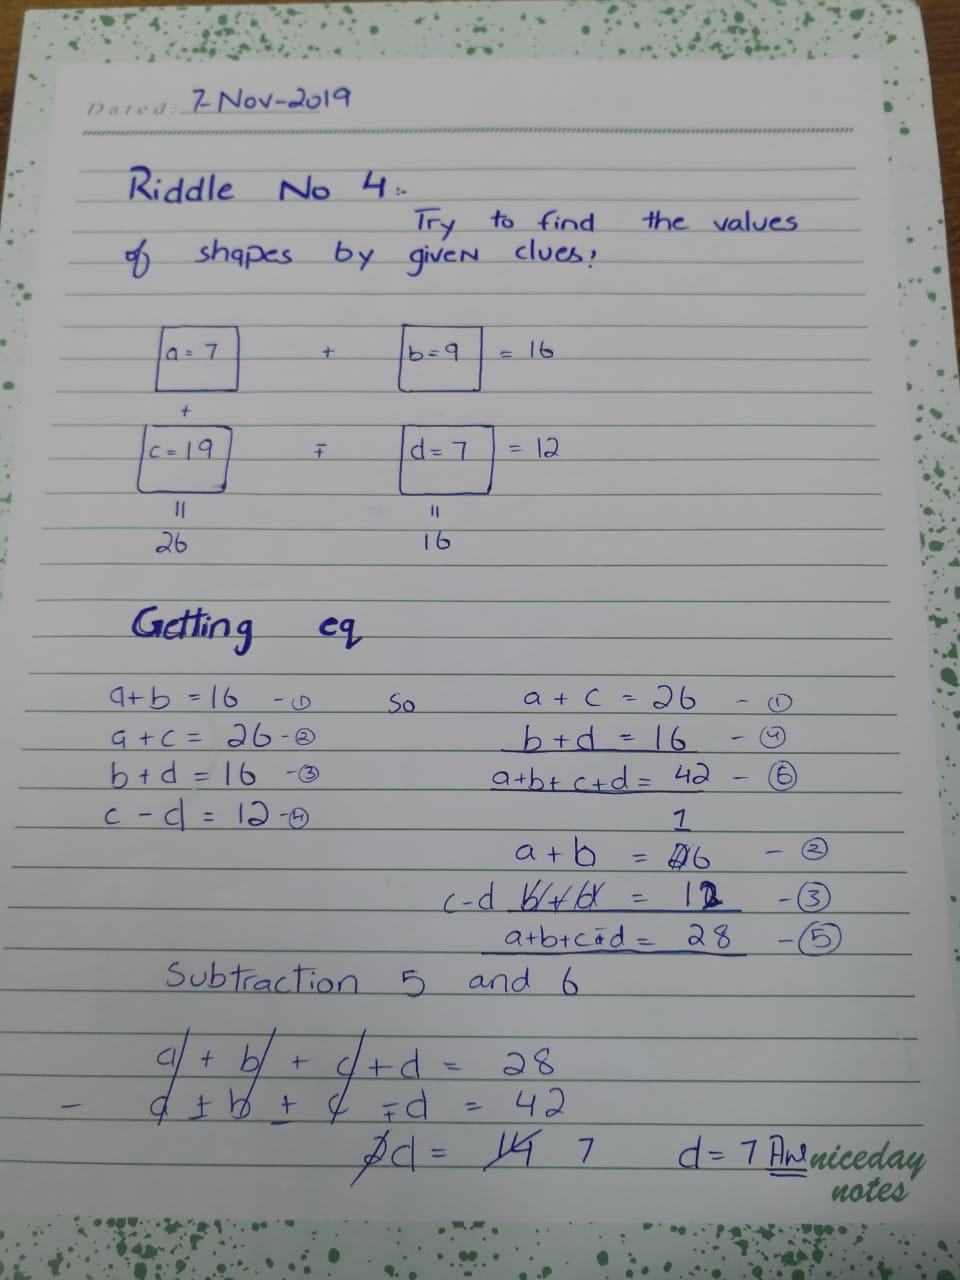 Dated: 7-Nov-2019
Riddle No 4:-
Try to find the values
of shapes by given clues,
a = 7 + b = 9 = 16
+
c = 19 ∓ d = 7 = 12
= =
26 16
Getting eq
a+b = 16 - ① so a + c = 26 - ①
a + c = 26 - ② b + d = 16 - ④
b + d = 16 - ③ a+b+c+d = 42 - ⑥
c - d = 12 - ④ 1
a + b = 6 - ②
c-d b+d = 12 - ③
a+b+c-d = 28 - ⑤
Subtraction 5 and 6
a + b + c + d = 28
- a ± b ± c ∓ d = 42
2d = 14 7 d = 7 Ans
niceday
notes